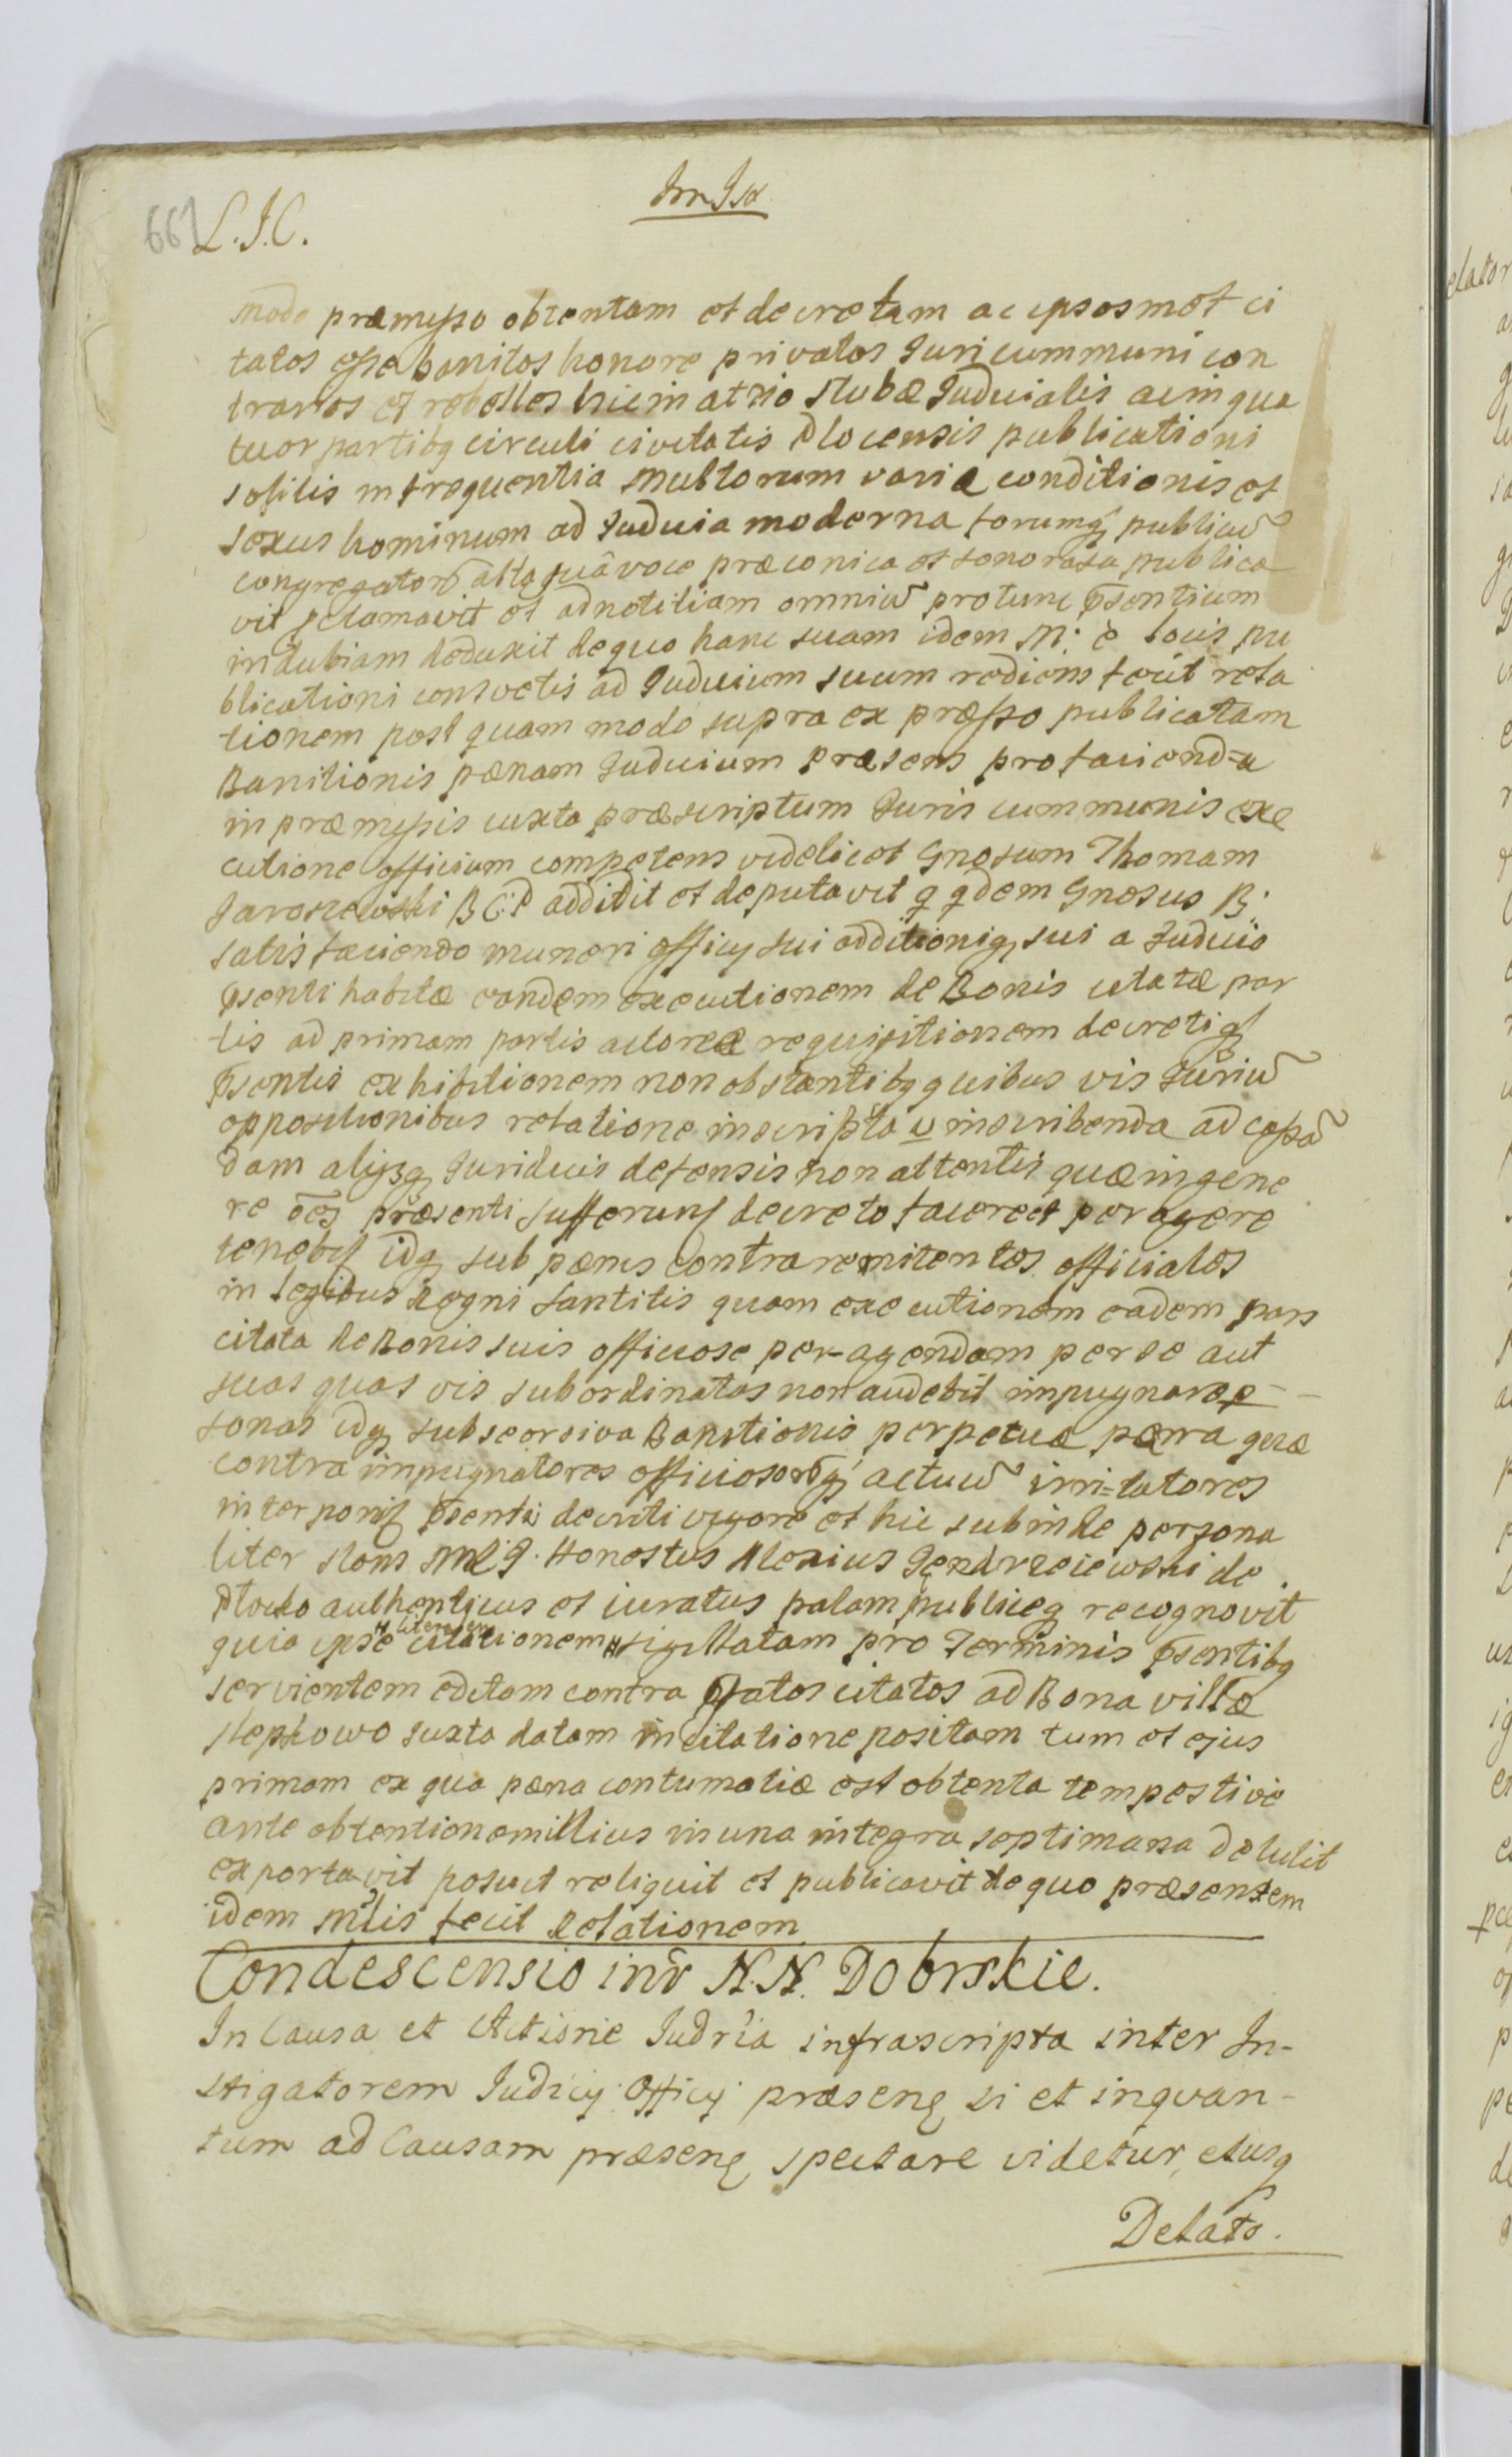 667 L.J.C.
modo præmisso obtentam et decretam ac ipsosmet ci
tatos esse banitos honore privatos Juri cummuni con
trarios et rebelles hic in atrio stubæ Judicialis ac in qua
tuor partibq circuli civitatis Plocensis publicationi
solitis in frequentia multorum variæ conditionis et
sexus hominum ad Judicia moderna forumq publicū
congregatorū alta suâ voce præconica et sonorosa publica
vit pclamavit et ad notitiam omniū pro tunc psentium
indubiam deduxit de quo hanc suam idem M: è locis pu
blicationi consvetis ad Judicium suum rediens fecit rela
tionem post quam modo supra ex præsso publicatam
Banitionis pænam Judicium præsens pro faciend=a
in præmissis iuxta præscriptum Juris cummunis exe
cutione officium competens videlicet Gnosum Thomam
Jaroszewski B C: P addidit et deputavit q qdem Gnosus B:
satisfaciendo muneri officij sui additioniq sui a Judicio
psenti habitæ eandem executionem de Bonis citatæ par
tis ad primam partis actoreæ requisitionem decretiq
psentis exhibitionem non obstantibq quibus vis Juriū
oppositionibus relatione inscripta v inscribenda ad cassā
dam alijsq Juridicis defensis non attentis quæ in gene
re oēs præsenti sufferunt decreto facere et peragere
tenebit idq sub pænis contra remitentes officiales
in legibus Regni sancitis quam executionem eadem pars
citata de Bonis suis officiose per-agendam per se aut
suas quas vis subordinatas non audebit impugnare p--
sonas idq sub seorsiva Banitionis perpetuæ pæna quæ
contra impugnatores officiosorūq actuū irri=tatores
interponit psentis decreti vigore et hic subinde persona
liter stans Mlg. Honestus Alexius Jędrzeiewski de
Płocko authenticus et iuratus palam publiceq recognovit
quia ipse citationem # sigillatam pro Terminis psentibq
# literalem
servientem editam contra pfatos citatos ad Bona villæ
Stepkowo Juxta datam in citatione positam tum et ejus
primam ex qua pæna contumatiæ est obtenta tempestive
ante obtentionem illius vis una integra septimana detulit
exportavit posuit reliquit et publicavit de quo præsentem
idem Mlis fecit Relationem
Condescensio int̄r N.N. Dobrskie.
In Causa et Actione Judr̄ia infrascripta inter In-
stigatorem Judicij Officij præsenq si et inquan-
tum ad Causam præsenq spectare videtur, eiusq
Delato.